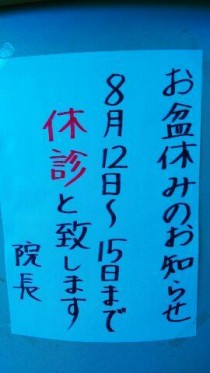 お盆休みのお知らせ
8月12日〜15日まで
休診と致します
院長